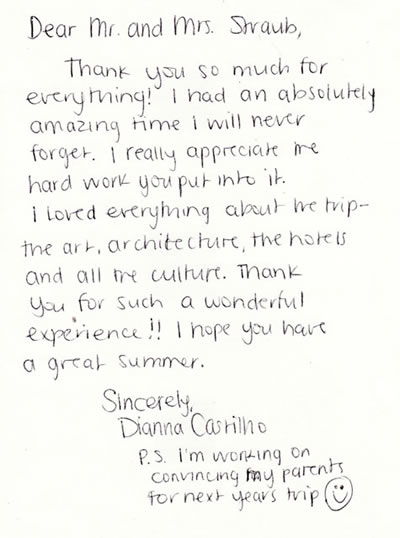 Dear Mr. and Mrs. Straub,
Thank you so much for
everything! I had an absolutely
amazing time I will never
forget. I really appreciate the
hard work you put into it.
I loved everything about the trip-
the art, architecture, the hotels
and all the culture. Thank
you for such a wonderful
experience!! I hope you have
a great summer.
Sincerely,
Dianna Castilho
P.S. I'm working on
convincing my parents
for next years trip ☺